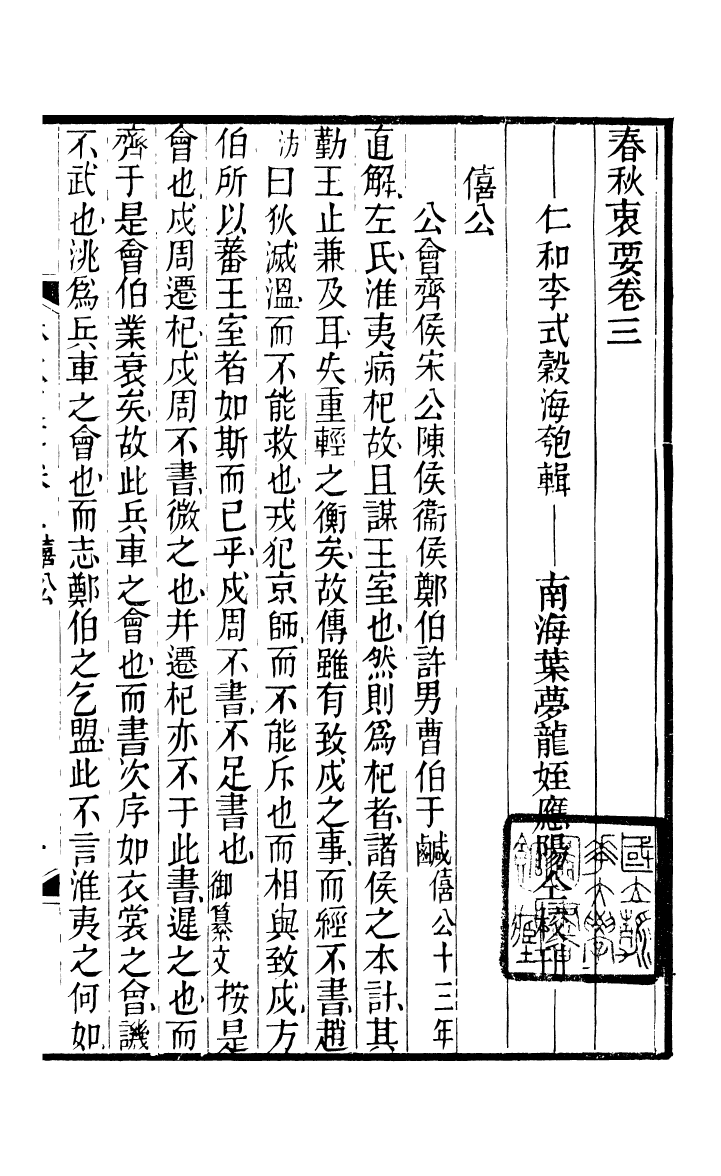 春秋衷要卷三
仁和李式穀海匏輯　南海葉夢龍姪應陽仝校
僖公
公會齊侯宋公陳侯衞侯鄭伯許男曹伯于鹹僖公十三年
直解左氏淮夷病杞故且謀王室也然則爲杞者諸侯之本計其
勤王止兼及耳失重輕之衡矣故傳雖有致戍之事而經不書趙
汸曰狄滅溫而不能救也戎犯京師而不能斥也而相與致戍方
伯所以蕃王室者如斯而已乎戍周不書不足書也御纂文　按是
會也戍周遷杞戍周不書微之也并遷杞亦不于此書遲之也而
齊于是會伯業衰矣故此兵車之會也而書次序如衣裳之會譏
不武也洮爲兵車之會也而志鄭伯之乞盟此不言淮夷之何如
僖公